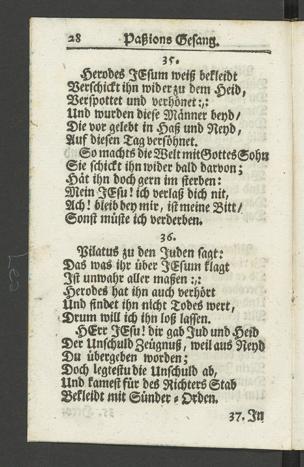 28 Paßions Gesang.
35.
Herodes JEsum weiß bekleidt
Verschickt ihn wider zu dem Heid,
Verspottet und verhönet:,:
Und wurden diese Männer beyd/
Die vor gelebt in Haß und Neyd,
Auf diesen Tag versöhnet.
So machts die Welt mit Gottes Sohn
Sie schickt ihn wider bald darvon;
Hät ihn doch gern im sterben:
Mein JEsu! ich verlaß dich nit,
Ach! bleib bey mir, ist meine Bitt/
Sonst müste ich verderben.
36.
Pilatus zu den Juden sagt:
Das was ihr über JEsum klagt
Ist unwahr aller maßen:,:
Herodes hat ihn auch verhört
Und findet ihn nicht Todes wert,
Drum will ich ihn loß lassen.
HErr JEsu! dir gab Jud und Heid
Der Unschuld Zeugnuß, weil aus Neyd
Du übergeben worden;
Doch legtest du die Unschuld ab,
Und kamest für des Richters Stab
Bekleidt mit Sünder-Orden.
37. Jn